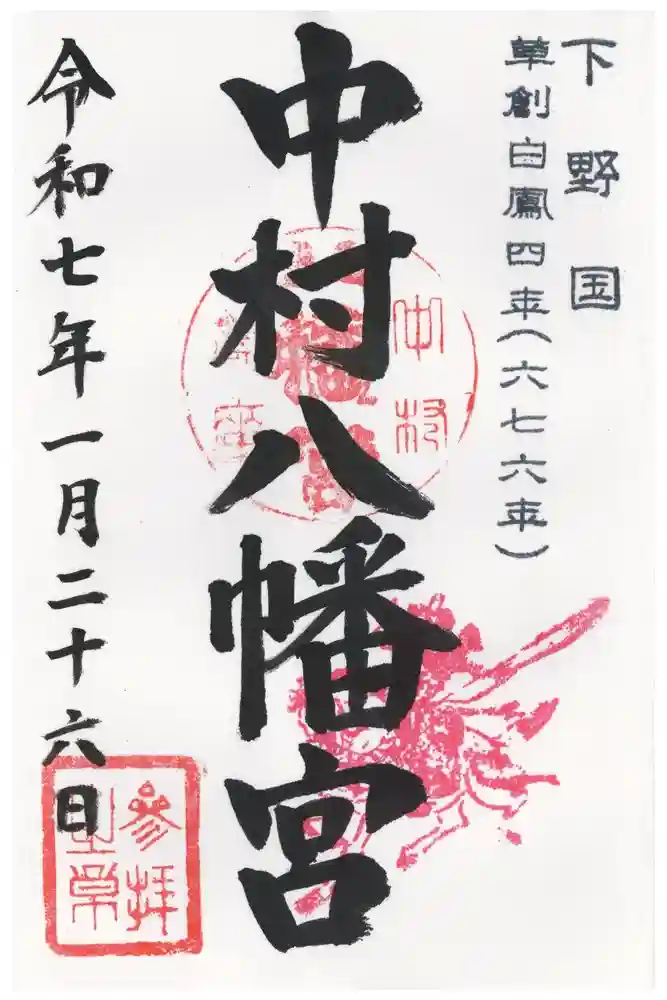 下野国
草創白鳳四年(六七六年)
中村八幡宮
中村
八幡宮
令和七年一月二十六日
参拝